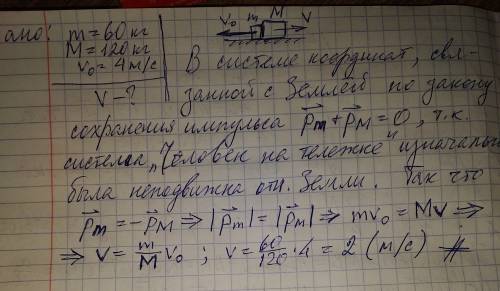 ано: m = 60 кг
M = 120 кг
v₀ = 4 м/с
V - ?
V₀ m M V
В системе координат, свя-
занной с Землей по закону
сохранения импульса P⃗m + P⃗M = 0, т.к.
система "Человек на тележке" изначально
была неподвижна отн. Земли. Так что
P⃗m = -P⃗M ⇒ |P⃗m| = |P⃗M| ⇒ mv₀ = Mv ⇒
⇒ v = m/M v₀ ; v = 60/120 · 4 = 2 (м/с) #